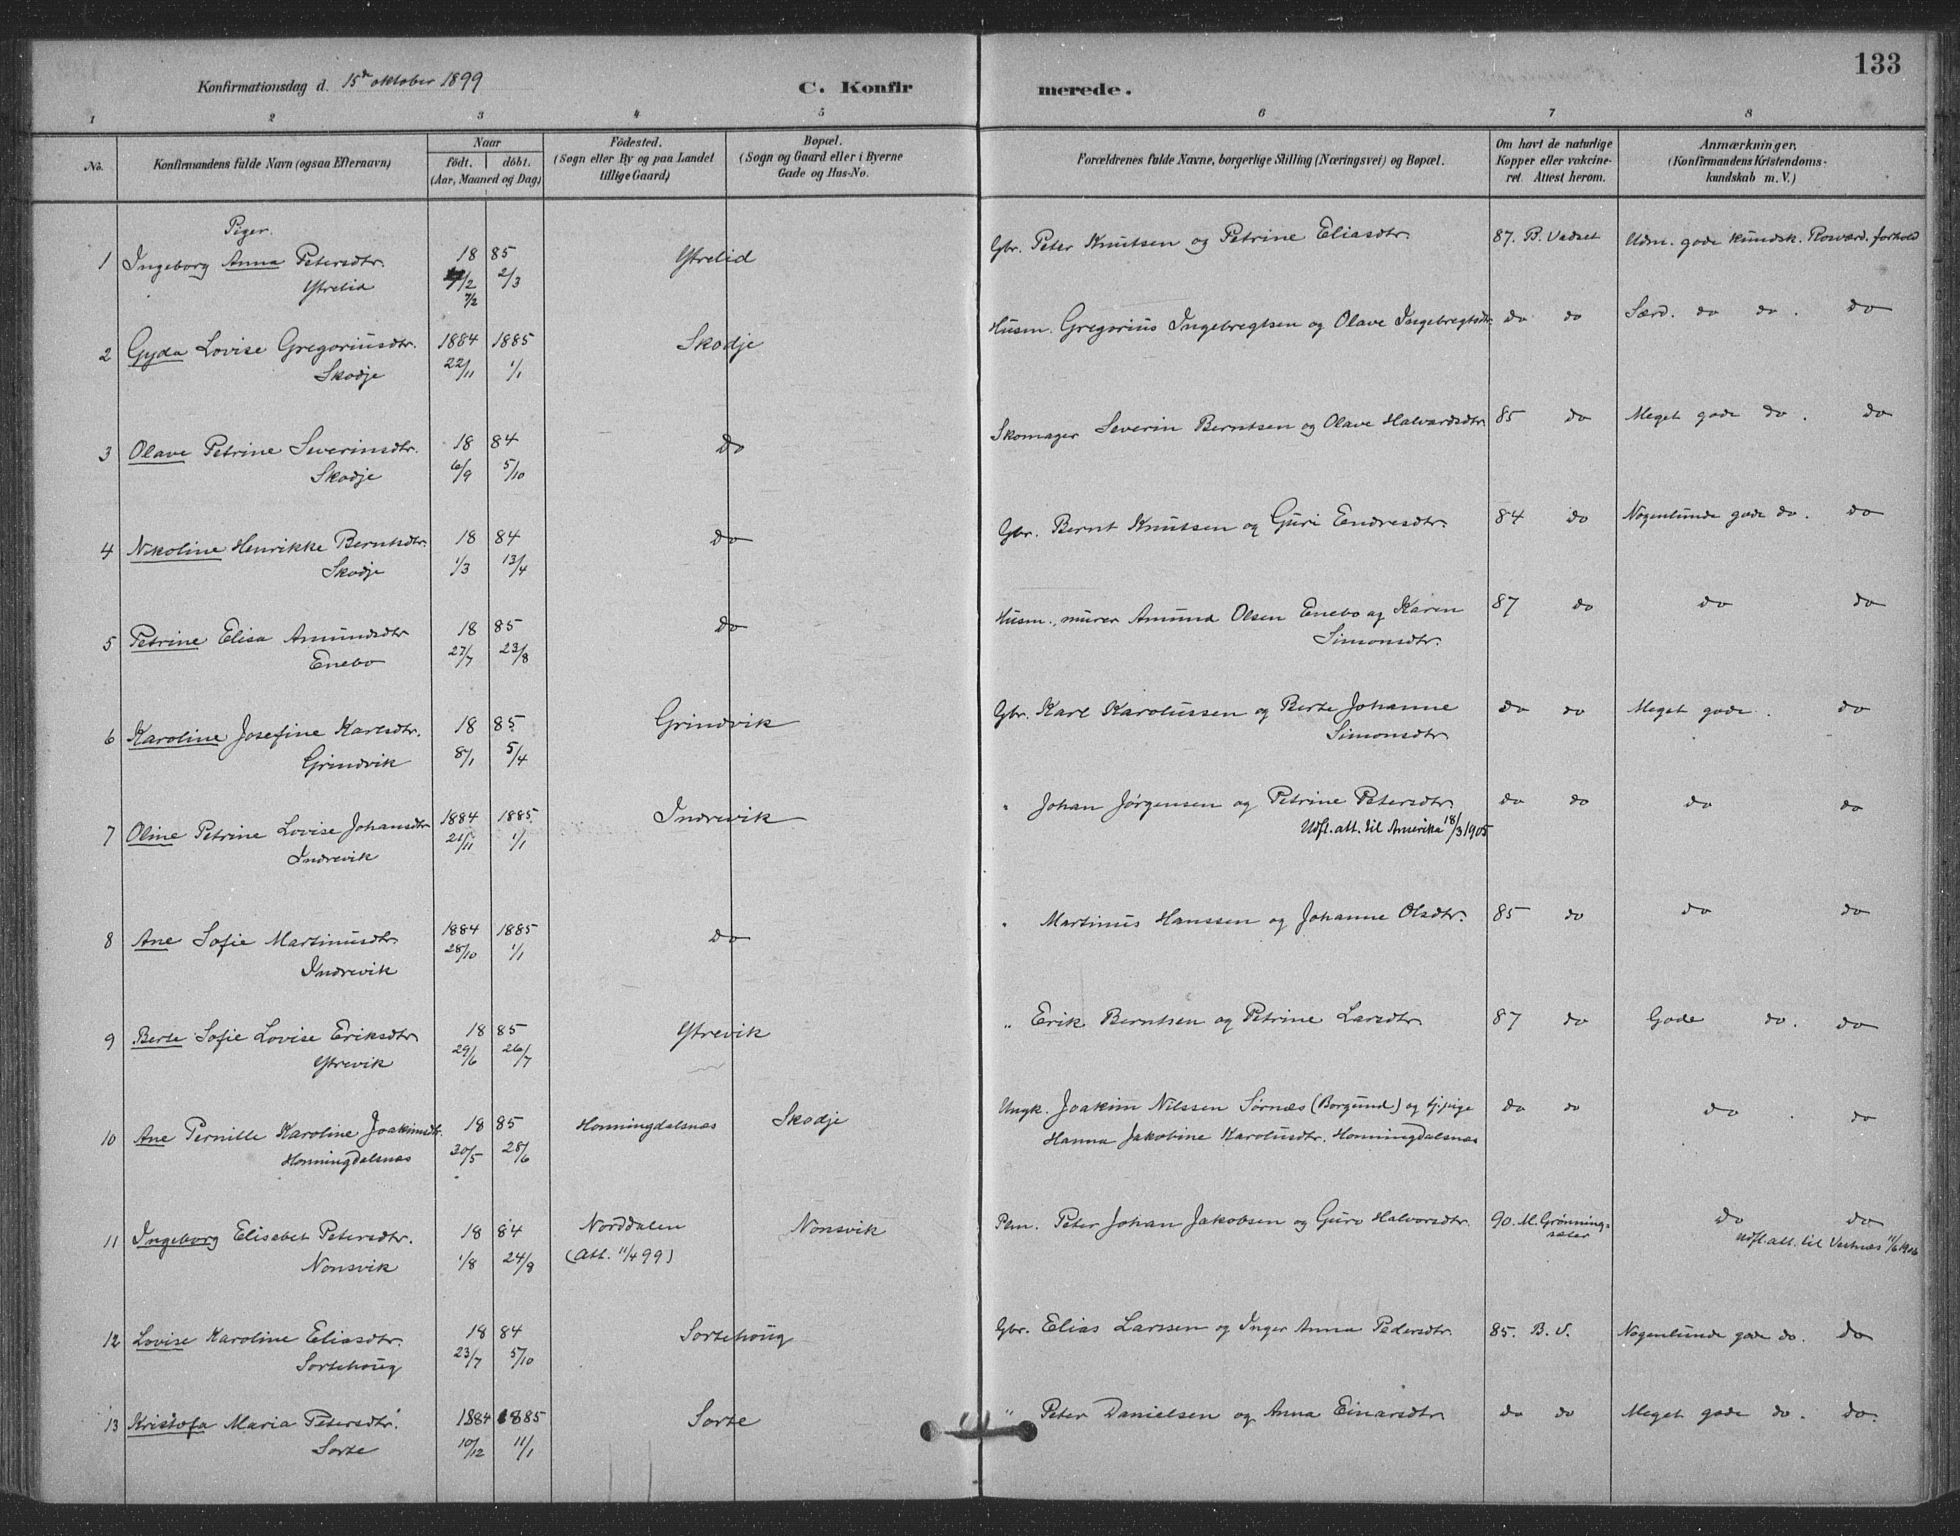 133
Konfirmationsdag d. 15de oktober 1899 C. Konfir merede.
1 2 3 4 5 6 7 8
No. Konfirmandens fulde Navn (ogsaa Efternavn) Naar født. døbt. (Aar, Maaned og Dag) Fødested. (Sogn eller By og paa Landet tillige Gaard) Bopæl. (Sogn og Gaard eller i Byerne Gade og Hus-No. Forældrenes fulde Navne, borgerlige Stilling (Næringsvei) og Bopæl. Om havt de naturlige Kopper eller vakcineret. Attest herom. Anmærkninger. (Konfirmandens Kristendomskundskab m. V.)
Piger.
1 Ingeborg Anna Petersdtr. 18 85 Ytrelid Gbr. Peter Knutsen og Petrine Eliasdtr. 87. B. Vadset Udm. gode kundsk. Rosværd. forhold
Ytrelid 7/2 2/3
7/2
2 Gyda Lovise Gregoriusdtr. 1884 1885 Skodje Husm. Gregorius Ingebregtsen og Olave Ingebregtsdtr. do do Særd. do do. do
Skodje 22/11 1/1
3 Olave Petrine Severinsdtr. 18 84 do Skomager Severin Berntsen og Olave Halvardsdtr. 85 do Meget gode do. do
Skodje 6/9 5/10
4 Nikoline Henrikke Berntsdtr. 18 84 do Gbr. Bernt Knutsen og Guri Endresdtr. 84 do Nogenlunde gode do. do
Skodje 1/3 13/4
5 Petrine Elisa Amundsdtr 18 85 do Husm., murer Amund Olsen Enebo og Karen 87 do do do
Enebo 27/7 23/8 Simonsdtr.
6 Karoline Josefine Karlsdtr. 18 85 Grindvik Gbr. Karl Karolussen og Berte Johanne do do Meget gode. do
Grindvik 8/1 5/4 Simonsdtr
7 Oline Petrine Lovise Johansdtr 1884 1885 Indrevik " Johan Jørgensen og Petrine Petersdtr. do do do do
Indrevik 21/11 1/1 Udfl. att. til Amerika 18/3 1905
8 Ane Sofie Martinusdtr. 1884 1885 do " Martinus Hanssen og Johanne Olsdtr. 85 do do do
Indrevik 28/10 1/1
9 Berte Sofie Lovise Eriksdtr 18 85 Ytrevik " Erik Berntsen og Petrine Larsdtr. 87 do Gode do. do
Ytrevik 29/6 26/7
10 Ane Pernille Karoline Joakimsdtr. 18 85 Honningdalsnæs Skodje Ungk. Joakim Nilssen Sørnæs (Borgund) og tj.pige do do do. do
Honningdalsnæs 30/5 28/6 Hanna Jakobine Karolusdtr. Honningdalsnæs
11 Ingeborg Elisabet Petersdtr. 18 84 Norddalen Nonsvik Plm. Peter Johan Jakobsen og Guro Halvorsdtr. 90. M. Grønningsæter do do
Nonsvik 1/8 24/8 (Att. 11/4 99) Udfl. att. til Vestnæs 11/6 1906
12 Lovise Karoline Eliasdtr. 18 84 Sortehoug Gbr. Elias Larssen og Inger Anna Pedersdtr. 85. B. V. Nogenlunde gode do. do
Sortehoug 23/7 5/10
13 Kristofa Maria Petersdtr. 1884 1885 Sorte " Peter Danielsen og Anna Einarsdtr do do Meget gode do. do.
Sorte 10/12 11/1